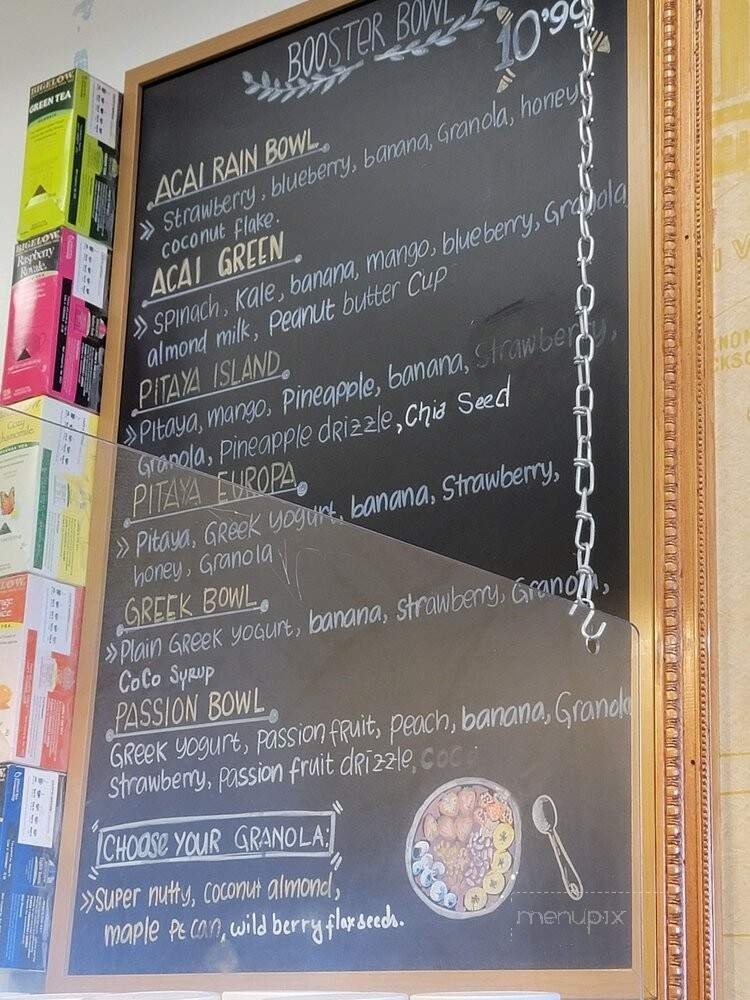 BOOSTER BOWL 10'99
ACAI RAIN BOWL
» Strawberry, blueberry, banana, Granola, honey
coconut flake.
ACAI GREEN
» Spinach, Kale, banana, mango, blueberry, Granola
almond milk, Peanut butter Cup
PITAYA ISLAND
» Pitaya, mango, Pineapple, banana, Strawberry,
Granola, Pineapple drizzle, Chia Seed
PITAYA EUROPA
» Pitaya, Greek yogurt, banana, Strawberry,
honey, Granola
GREEK BOWL
» Plain Greek yogurt, banana, strawberry, Granola,
CoCo Syrup
PASSION BOWL
Greek yogurt, passion fruit, peach, banana, Granola
strawberry, passion fruit drizzle, coco
CHOOSE YOUR GRANOLA:
» Super nutty, coconut almond,
maple pecan, wild berry flaxseeds.
BIGELOW
GREEN TEA
BIGELOW
Raspberry
Royale
Cozy
Chamomile
menupix